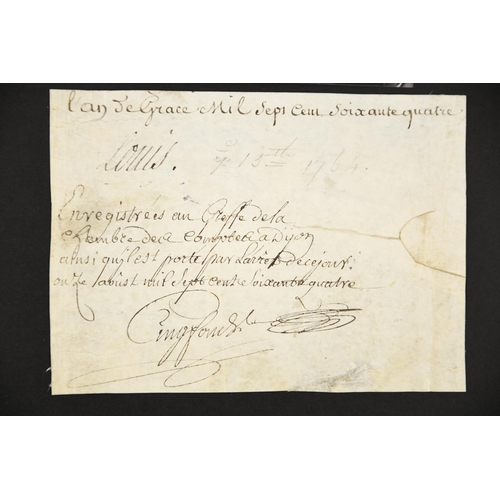 l'an de Grace Mil Sept Cent Soixante quatre
Louis. 15 1764.
Enregistrées au Greffe de la
Chambre des Comptes a Dijon
ainsi qu'il est porté par L'arrêt de ce jour
onze aoust mil Sept Cent Soixante quatre